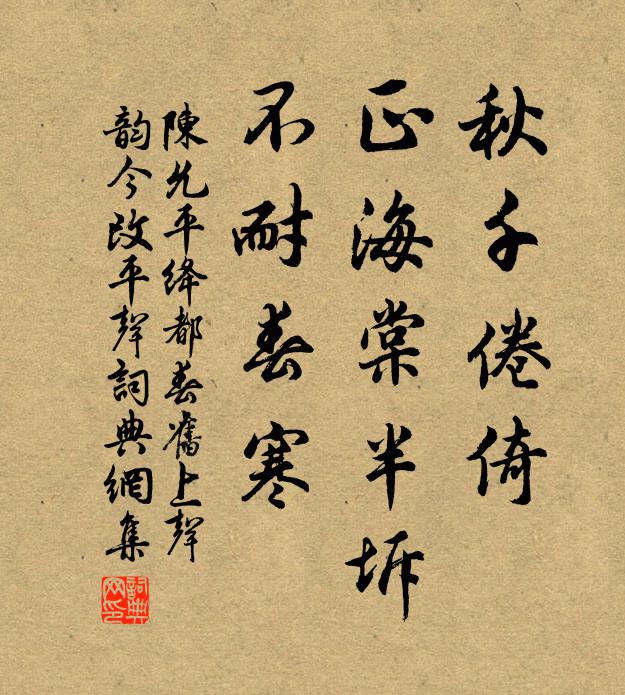 秋千倦倚
正海棠半坼
不耐春寒
陳允平絳都春舊上聲
韵今改平聲詞典網集
詞典网印